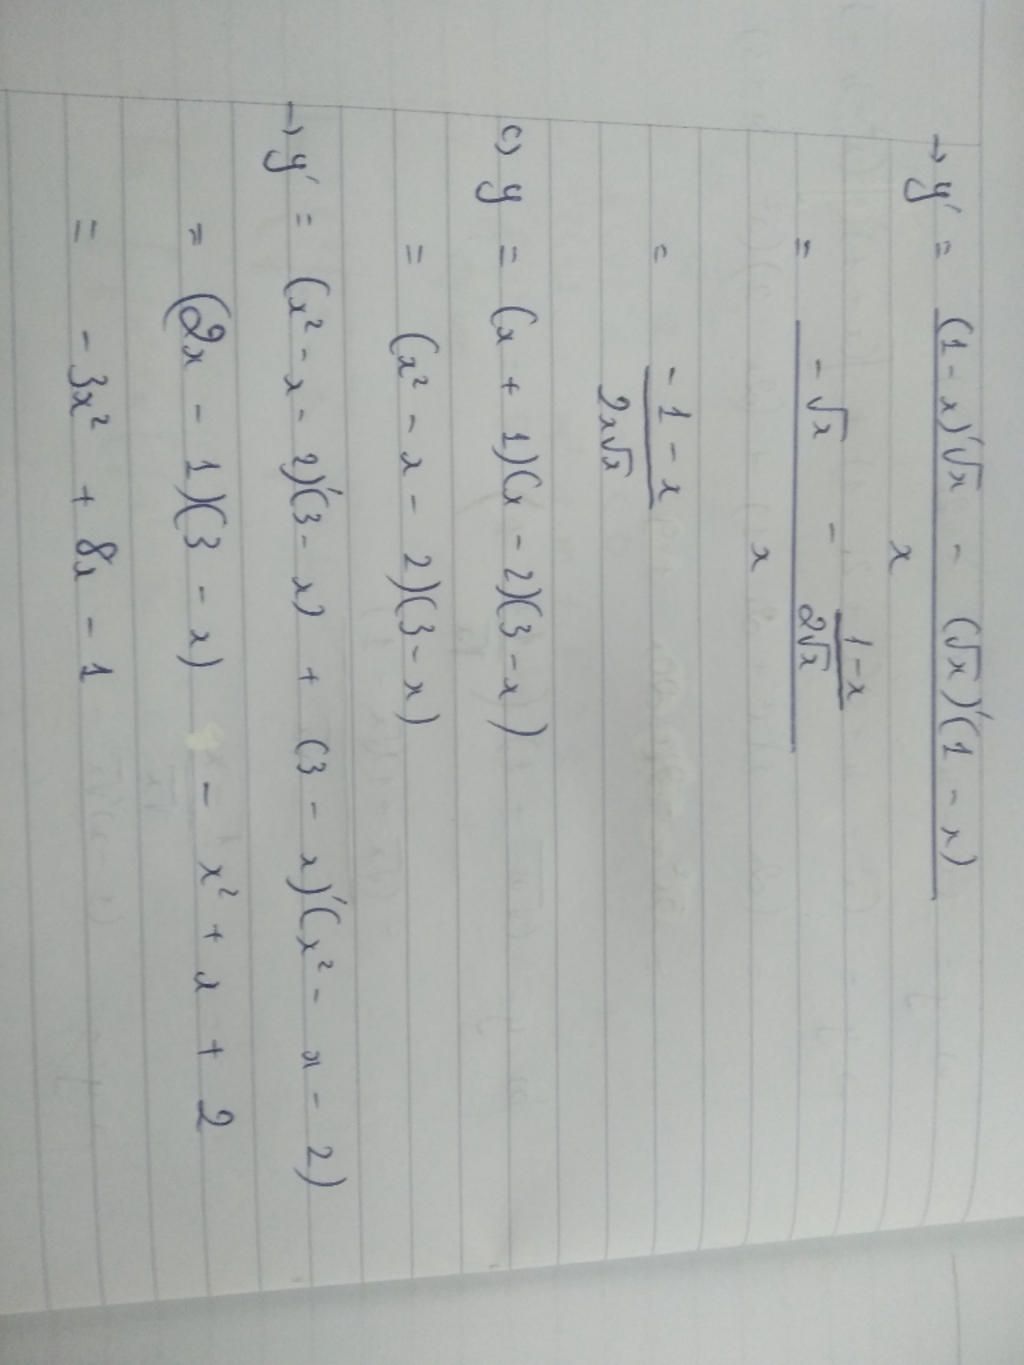 → y' = ((1 - x)'√x - (√x)'(1 - x)) / x
= (-√x - (1 - x)/(2√x)) / x
= (-1 - x) / (2x√x)
c) y = (x + 1)(x - 2)(3 - x)
= (x² - x - 2)(3 - x)
→ y' = (x² - x - 2)'(3 - x) + (3 - x)'(x² - x - 2)
= (2x - 1)(3 - x) - x² + x + 2
= -3x² + 8x - 1